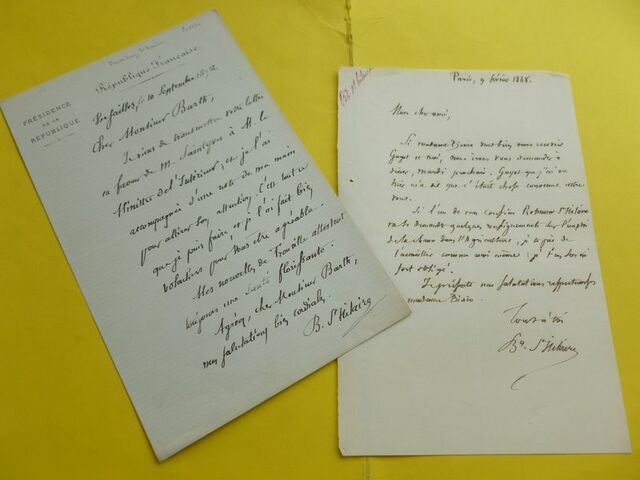 République Française
PRÉSIDENCE
DE LA
RÉPUBLIQUE
Versailles, le 10 Septembre 1872
Cher Monsieur Barth,
Je viens de transmettre votre lettre
en faveur de M. à M. le
Ministre de l'Intérieur, et je l'ai
accompagnée d'une note de ma main
pour attirer son attention. C'est tout ce
que je puis faire, et je l'ai fait bien
volontiers pour vous être agréable.
Mes nouvelles de Trouville attestent
toujours une santé florissante.
Agréez, cher Monsieur Barth,
mes salutations bien cordiales.
B. St Hilaire
Paris, 9 février 1868.
Mon cher ami,
Si madame veut bien nous recevoir
et moi, nous irons vous demander à
dîner, mardi prochain.
n'a dit que c'était chose convenue entre
vous.
Si l'un de mes cousins St Hilaire
va te demander quelques renseignements sur l'emploi
dans l'Agriculture, je te prie de
l'accueillir comme moi même : je t'en serai
fort obligé.
Je présente mes salutations respectueuses
à madame
Tout à toi
B. St Hilaire